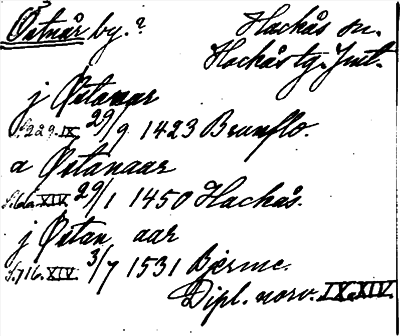 Östnår by.? Hackås sn.
Hackås tg. Jmt.
j Østanar
s. 229. IX. 29/9 1423 Brunflo.
a Østanaar
XIV 29/1 1450 Hackås.
j Østan, aar
s. 716. XIV. 3/7 1531 Bjerme.
Dipl. norv. IX. XIV.